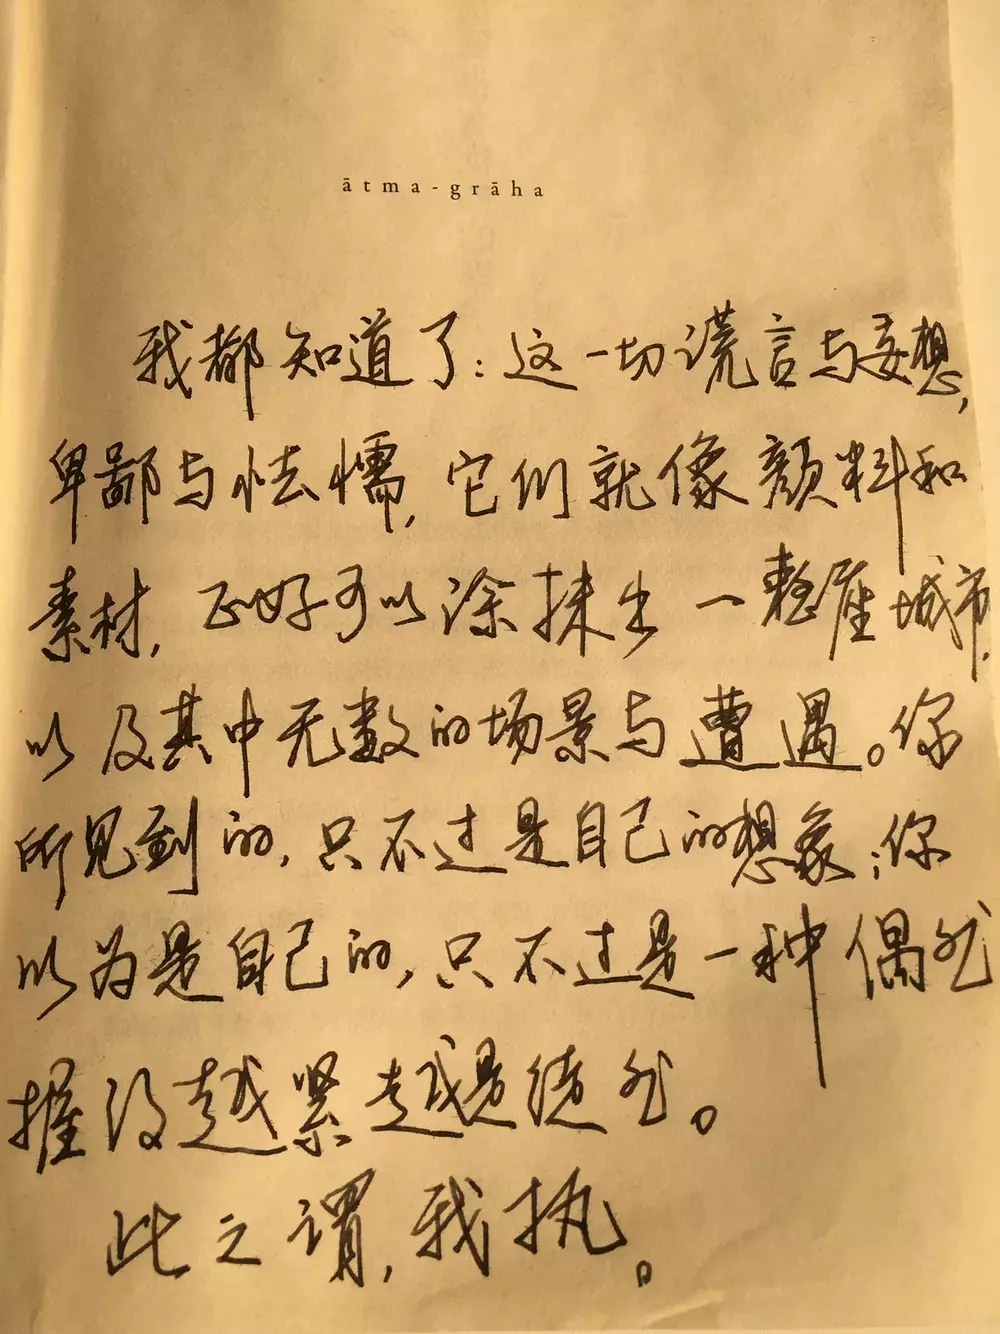 ātma-grāha
我都知道了：这一切谎言与妄想，
卑鄙与怯懦，它们就像颜料和
素材，正好可以涂抹出一整座城市，
以及其中无数的场景与遭遇。你
所见到的，只不过是自己的想象；你
以为是自己的，只不过是一种偶然
握得越紧越是徒然。
此之谓，我执。